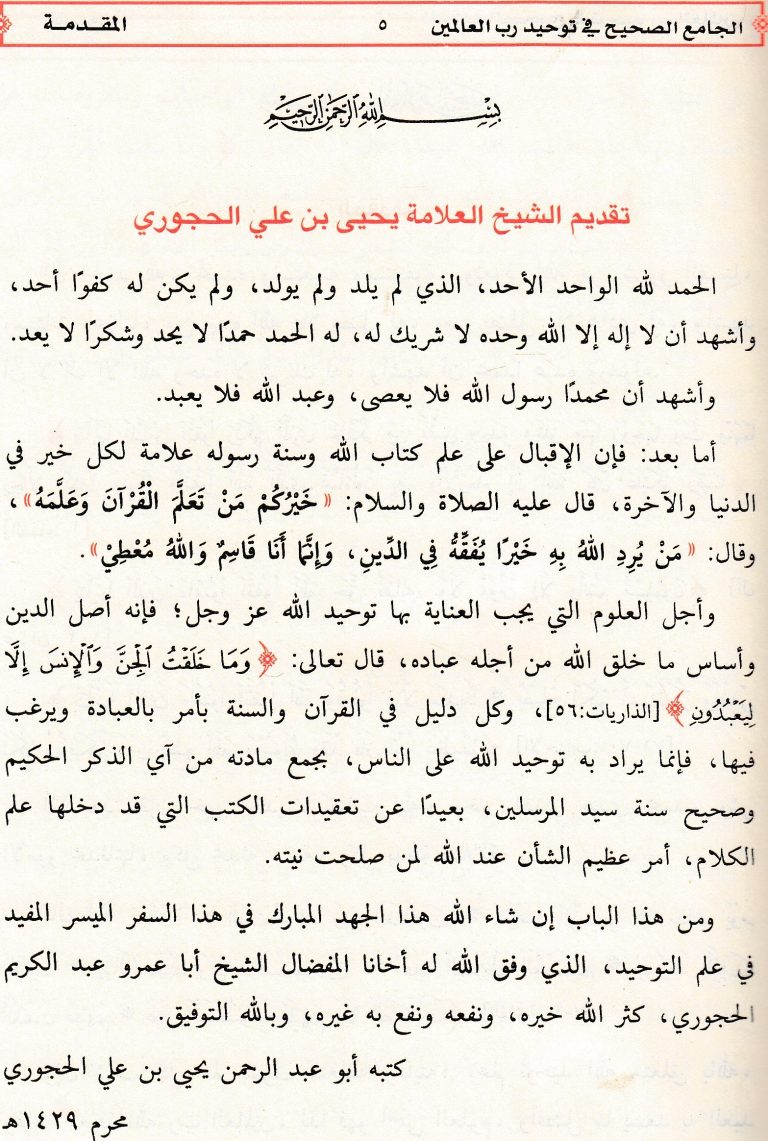 الجامع الصحيح في توحيد رب العالمين ٥ المقدمة
بسم الله الرحمن الرحيم
تقديم الشيخ العلامة يحيى بن علي الحجوري
الحمد لله الواحد الأحد، الذي لم يلد ولم يولد، ولم يكن له كفوًا أحد،
وأشهد أن لا إله إلا الله وحده لا شريك له، له الحمد حمدًا لا يحد وشكرًا لا يعد.
وأشهد أن محمدًا رسول الله فلا يعصى، وعبد الله فلا يعبد.
أما بعد: فإن الإقبال على علم كتاب الله وسنة رسوله علامة لكل خير في
الدنيا والآخرة، قال عليه الصلاة والسلام: «خَيْرُكُمْ مَنْ تَعَلَّمَ الْقُرْآنَ وَعَلَّمَهُ»،
وقال: «مَنْ يُرِدِ اللهُ بِهِ خَيْرًا يُفَقِّهُّ فِي الدِّينِ، وَإِنَّمَا أَنَا قَاسِمٌ وَاللهُ مُعْطِيْ».
وأجل العلوم التي يجب العناية بها توحيد الله عز وجل؛ فإنه أصل الدين
وأساس ما خلق الله من أجله عباده، قال تعالى: ﴿وَمَا خَلَقْتُ الْجِنَّ وَالْإِنسَ إِلَّا
لِيَعْبُدُونِ﴾ [الذاريات:٥٦]، وكل دليل في القرآن والسنة بأمر بالعبادة ويرغب
فيها، فإنما يراد به توحيد الله على الناس، بجمع مادته من آي الذكر الحكيم
وصحيح سنة سيد المرسلين، بعيدًا عن تعقيدات الكتب التي قد دخلها علم
الكلام، أمر عظيم الشأن عند الله لمن صلحت نيته.
ومن هذا الباب إن شاء الله هذا الجهد المبارك في هذا السفر الميسر المفيد
في علم التوحيد، الذي وفق الله له أخانا المفضال الشيخ أبا عمرو عبد الكريم
الحجوري، كثر الله خيره، ونفعه ونفع به غيره، وبالله التوفيق.
كتبه أبو عبد الرحمن يحيى بن علي الحجوري
محرم ١٤٢٩هـ